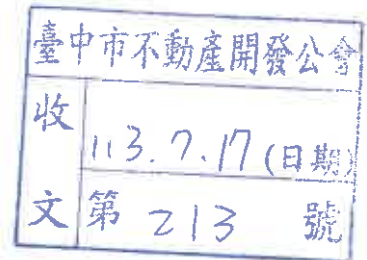 臺中市不動產開發公會
收文
113.7.17(日期)
第 213 號